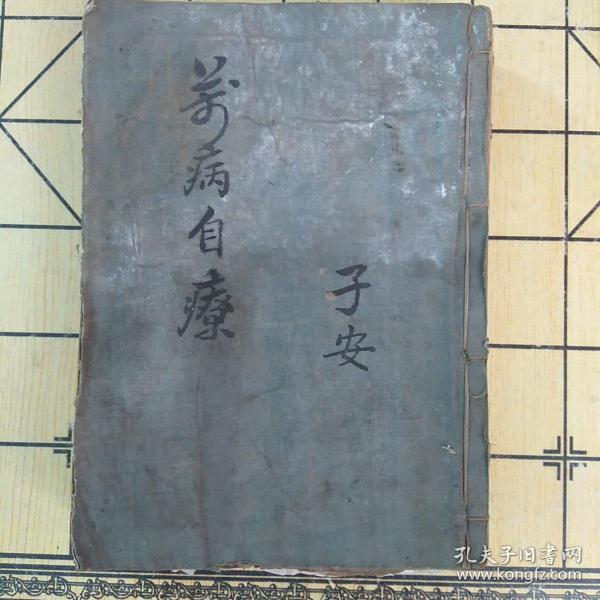 萬病自療
子安
孔夫子旧書网
www.kongfz.com